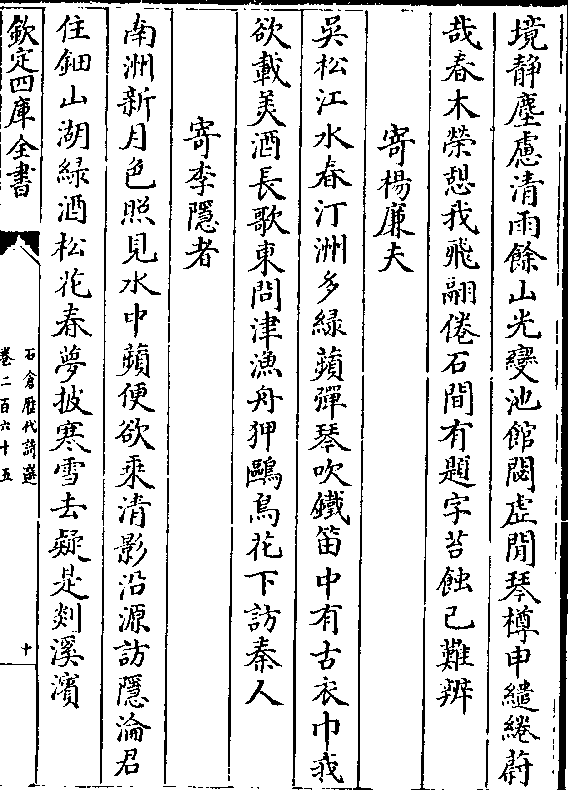 境静塵慮清雨餘山光變池館閟虚閒琴樽申繾綣蔚
哉春木榮愬我飛翮倦石間有題字苔蝕已難辨
寄楊廉夫
吳松江水春汀洲多綠蘋彈琴吹鐵笛中有古衣巾我
欲載美酒長歌東問津漁舟狎鷗鳥花下訪秦人
寄李隱者
南洲新月色照見水中蘋便欲乘清影沿源訪隱淪君
住鈿山湖綠酒松花春夢披寒雪去疑是剡溪濱
欽定四庫全書
石倉歷代詩選
卷二百六十五
十